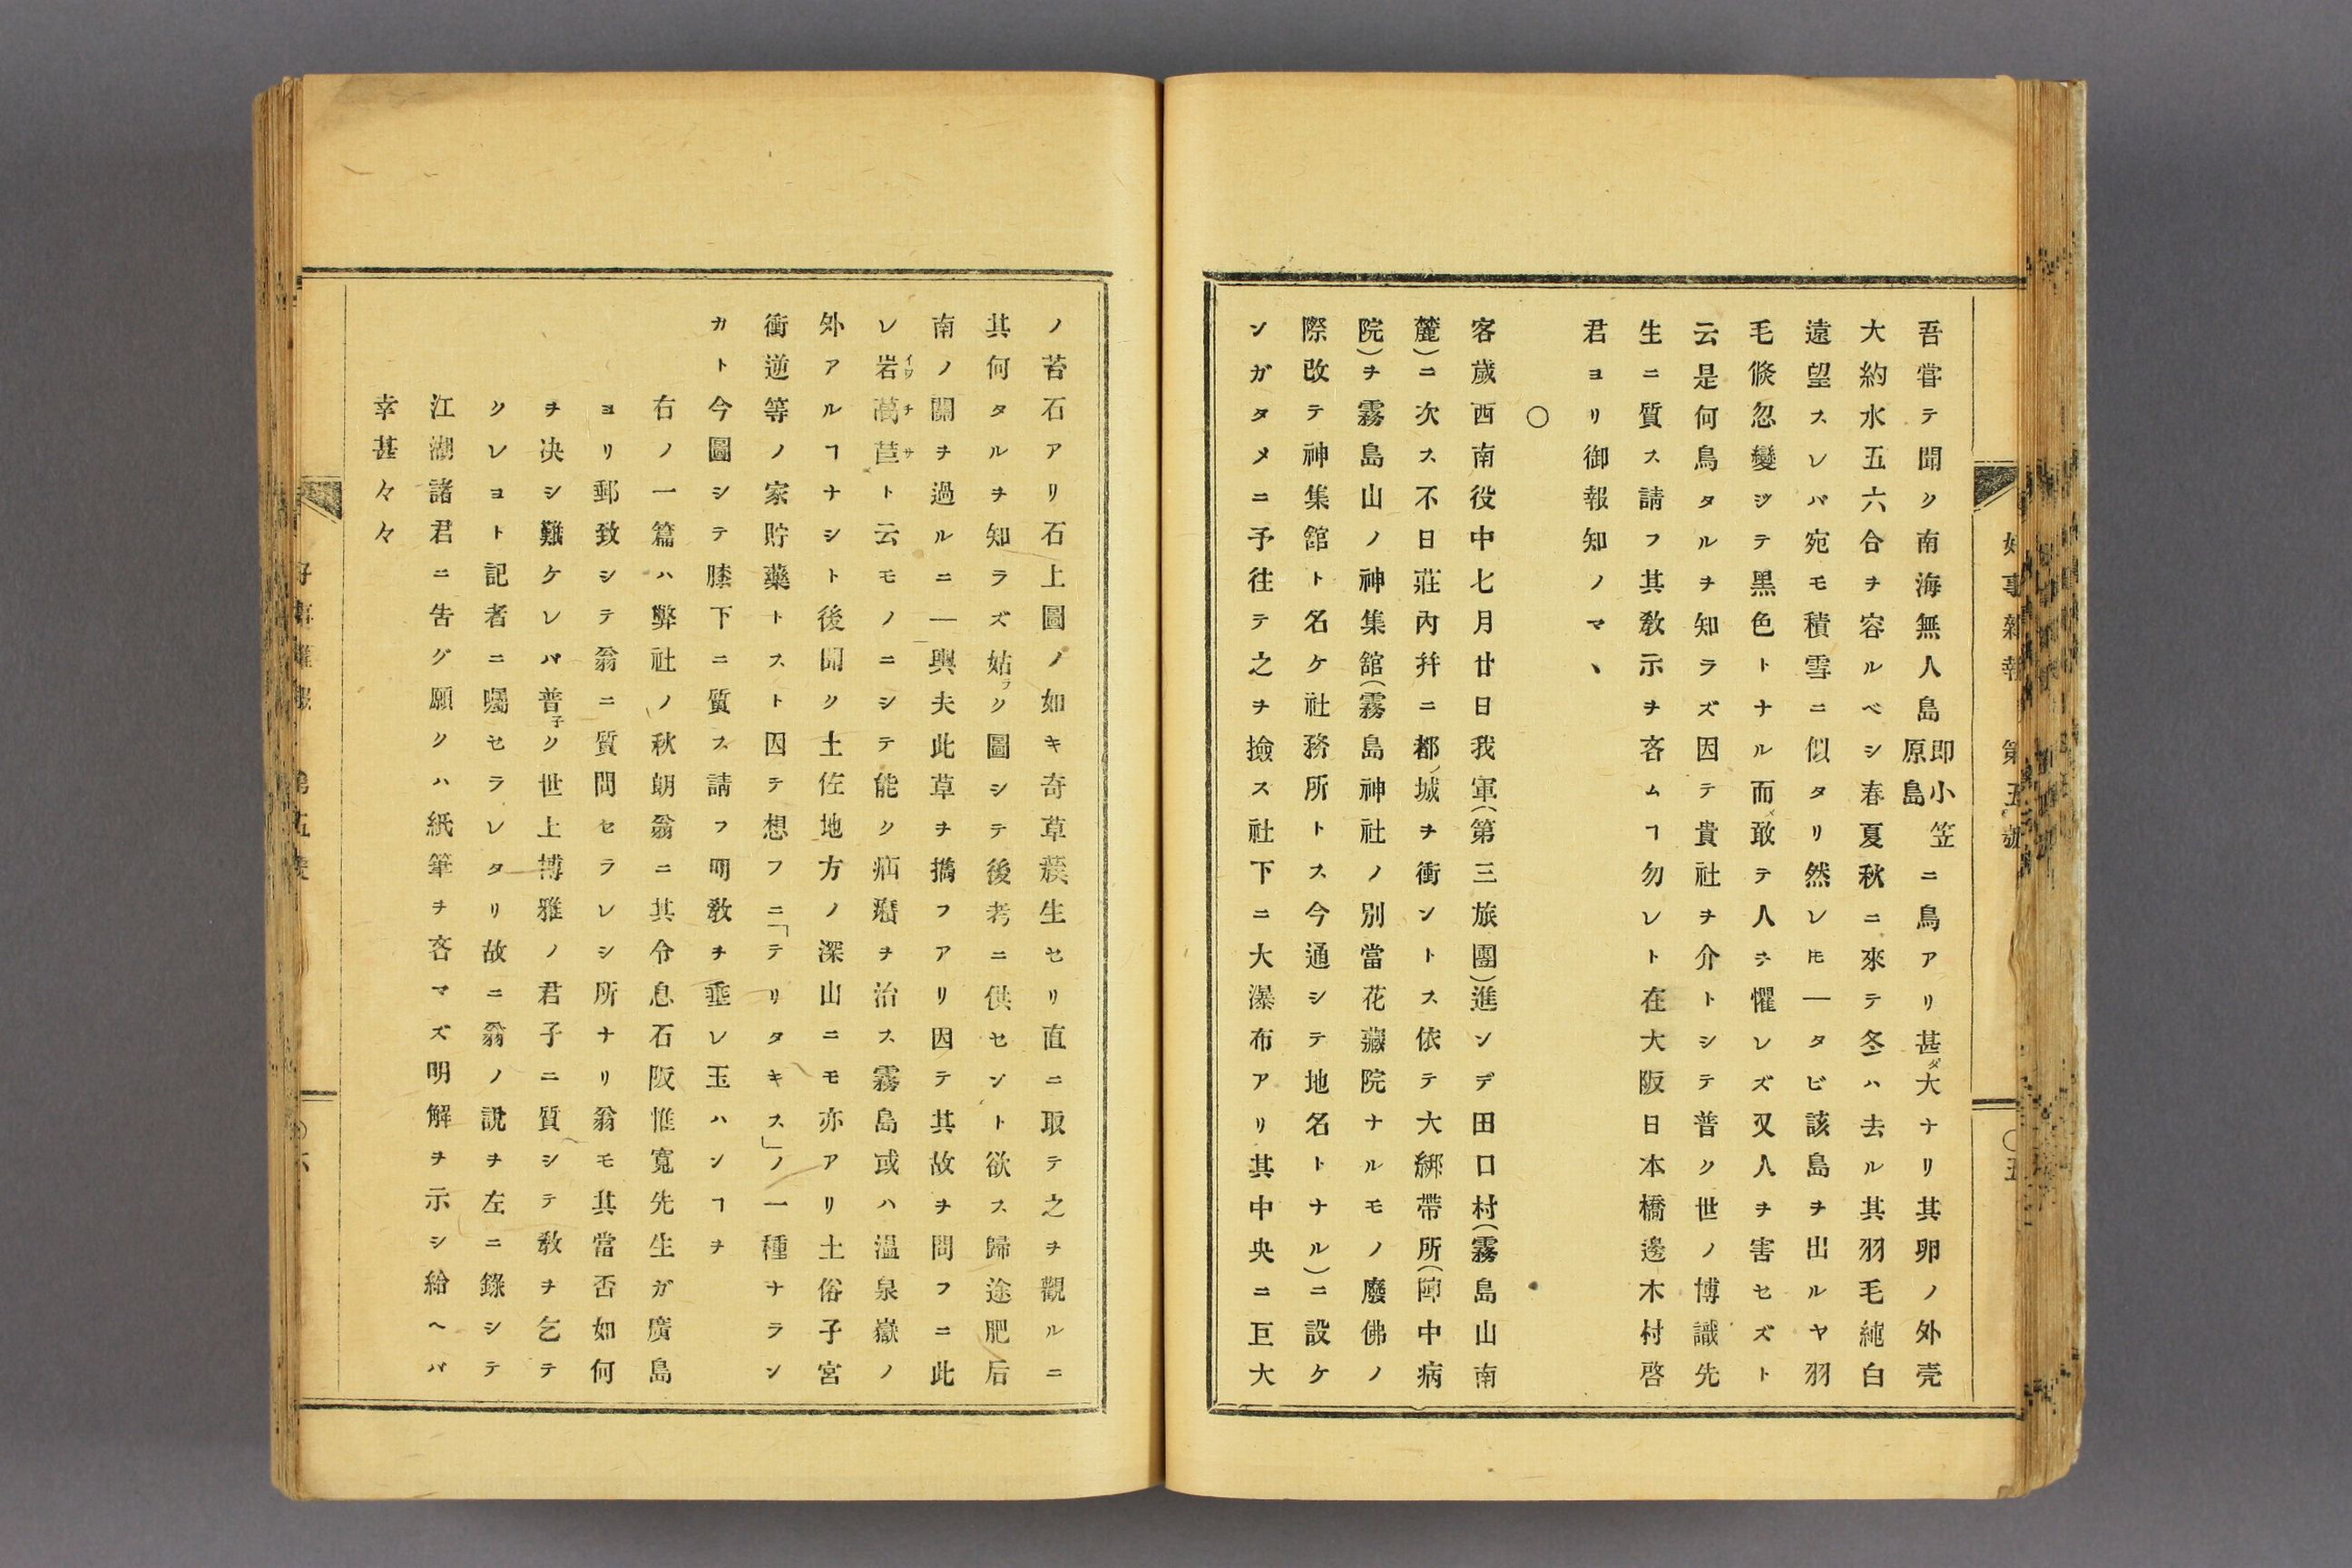 好事雜報 第五號
〇五
吾嘗テ聞ク南海無人島即小笠原島ニ鳥アリ甚ダ大ナリ其卵ノ外壳
大約水五六合ヲ容ルベシ春夏秋ニ來テ冬ハ去ル其羽毛純白
遠望スレバ宛モ積雪ニ似タリ然レ𪜈一タビ該島ヲ出ルヤ羽
毛倐忽變ジテ黑色トナル而メ敢テ人ヲ懼レズ又人ヲ害セズト
云是何鳥タルヲ知ラズ因テ貴社ヲ介トシテ普ク世ノ博識先
生ニ質ス請フ其敎示ヲ吝ムヿ勿レト在大阪日本橋邊木村啓
君ヨリ御報知ノマヽ
〇
客歲西南役中七月廿日我軍(第三旅團)進ンデ田口村(霧島山南
麓)ニ次ス不日莊內幷ニ都ノ城ヲ衝ントス依テ大綁帶所(陣中病
院)ヲ霧島山ノ神集館(霧島神社ノ別當花藏院ナルモノ廢佛ノ
際改テ神集館ト名ケ社務所トス今通シテ地名トナル)ニ設ケ
ンガタメニ予往テ之ヲ撿ス社下ニ大瀑布アリ其中央ニ巨大
ノ苔石アリ石上圖ノ如キ奇草蔟生セリ直ニ取テ之ヲ觀ルニ
其何タルヲ知ラズ姑ラク圖シテ後考ニ供セント欲ス歸途肥后
南ノ關ヲ過ルニ一輿夫此草ヲ擕フアリ因テ其故ヲ問フニ此
レ岩萵苣イワチサト云モノニシテ能ク疝癪ヲ治ス霧島或ハ溫泉嶽ノ
外アルヿナシト後聞ク土佐地方ノ深山ニモ亦アリ土俗子宮
衝逆等ノ家貯藥トスト因テ想フニ「テリタキス」ノ一種ナラン
カト今圖シテ膝下ニ質ス請フ明敎ヲ垂レ玉ハンヿヲ
右ノ一篇ハ弊社ノ秋朗翁ニ其令息石阪惟寬先生ガ廣島
ヨリ郵致シテ翁ニ質問セラレシ所ナリ翁モ其當否如何
ヲ决シ難ケレバ普子ク世上博雅ノ君子ニ質シテ敎ヲ乞テ
クレヨト記者ニ囑セラレタリ故ニ翁ノ說ヲ左ニ錄シテ
江湖諸君ニ告グ願クハ紙筆ヲ吝マズ明解ヲ示シ給ヘバ
幸甚々々